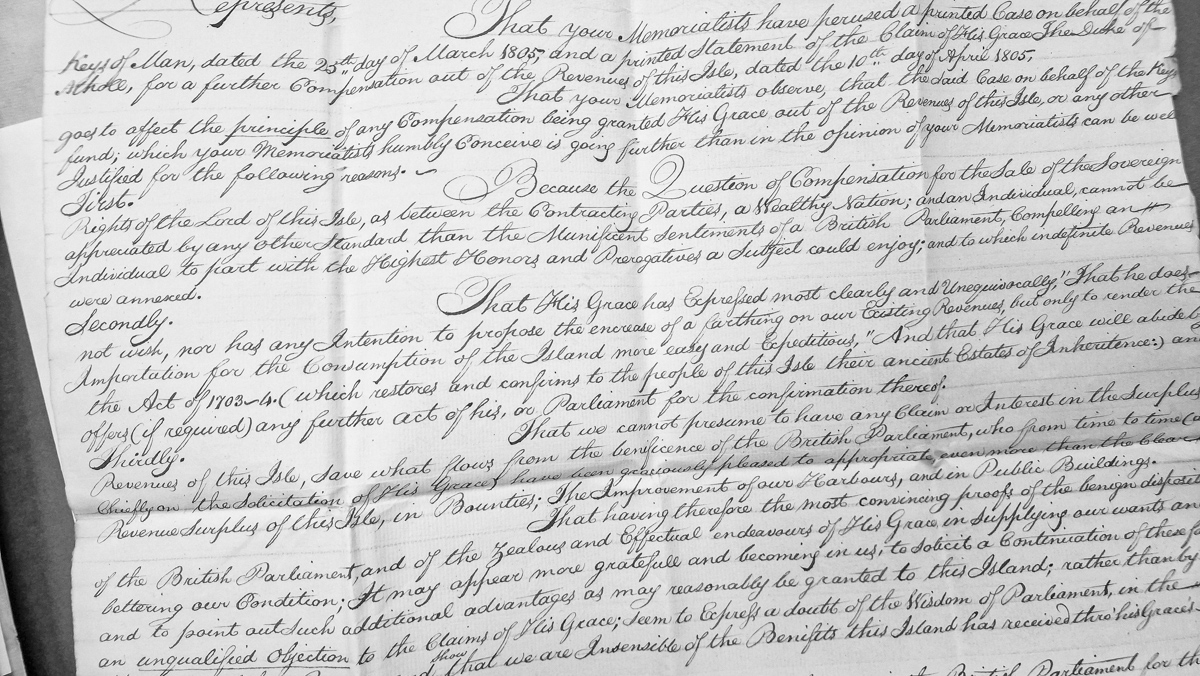 epresents,
That your Memorialists have perused a printed Case on behalf of the
Keys of Man, dated the 25th day of March 1805, and a printed Statement of the Claim of His Grace The Duke of
Atholl, for a further Compensation out of the Revenues of this Isle, dated the 10th day of April 1805,
That your Memorialists observe, that the Said Case on behalf of the Keys
goes to affect the principle of any Compensation being granted His Grace out of the Revenues of this Isle, or any other
fund; which your Memorialists humbly Conceive is going further than in the opinion of your Memorialists can be well
Justified for the following reasons.
First.
Because the Question of Compensation for the Sale of the Sovereign
Rights of the Lord of this Isle, as between the Contracting Parties, a Wealthy Nation; and an Individual, cannot be
appreciated by any other Standard than the Munificent Sentiments of a British Parliament, Compelling an
Individual to part with the Highest Honors and Prerogatives a Subject could enjoy; and to which indefinite Revenues
were annexed.
Secondly.
That His Grace has Expressed most clearly and Unequivocally, "That he does
not wish, nor has any Intention to propose the encrease of a farthing on our Existing Revenues, but only to render the
Importation for the Consumption of the Island more easy and Expeditious, "And that His Grace will abide by
the Act of 1703-4. (which restores and confirms to the people of this Isle their ancient Estates of Inheritence:) and
offers (if required) any further act of his, or Parliament for the confirmation thereof.
Thirdly.
That we cannot presume to have any Claim or Interest in the Surplus
Revenues of this Isle, save what flows from the benificence of the British Parliament, who from time to time
Chiefly on the Solicitation of His Grace) have been graciously pleased to appropriate even more than the Clear
Revenue Surplus of this Isle, in Bounties; The Improvement of our Harbours, and in Public Buildings.
That having therefore the most convincing proofs of the benign disposit
of the British Parliament, and of the Zealous and Effectual endeavours of His Grace, in supplying our wants an
bettering our Condition; It may appear more gratefull and becoming in us; to solicit a Continuation of these fa
and to point out such additional advantages as may reasonably be granted to this Island; rather than by
an unqualified Objection to the Claims of His Grace; seem to Express a doubt of the Wisdom of Parliament, in the
show
that we are Insensible of the Benifits this Island has received thro' his Graces
British Parliament for th